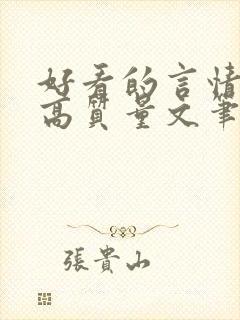 好看的言情
高质量文笔
張貴山